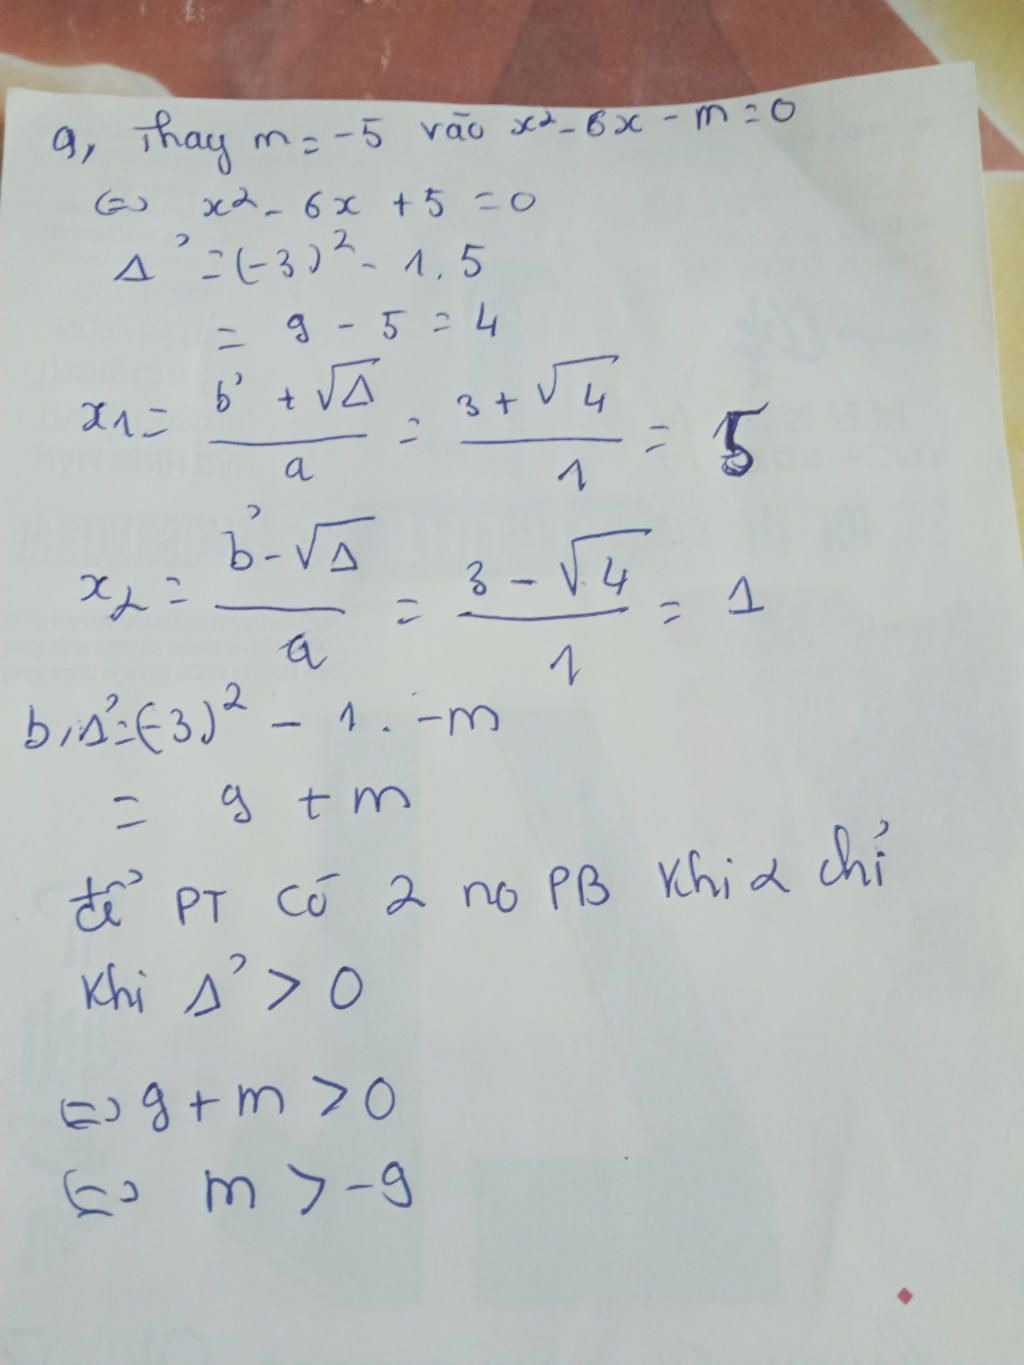 a, Thay m = -5 vào x² - 6x - m = 0
⇔ x² - 6x + 5 = 0
Δ' = (-3)² - 1.5
= 9 - 5 = 4
x1 = (b' + √Δ)/a = (3 + √4)/1 = 5
x2 = (b' - √Δ)/a = (3 - √4)/1 = 1
b, Δ' = (-3)² - 1 . -m
= 9 + m
để PT có 2 no PB khi & chỉ
khi Δ' > 0
⇔ 9 + m > 0
⇔ m > -9